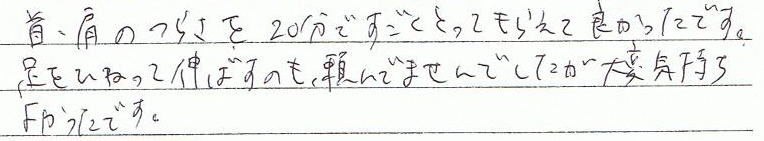 首、肩のつらさを20分ですごくとってもらえて良かったです。
足をひねって伸ばすのも、頼んでませんでしたが大変気持ち
よかったです。